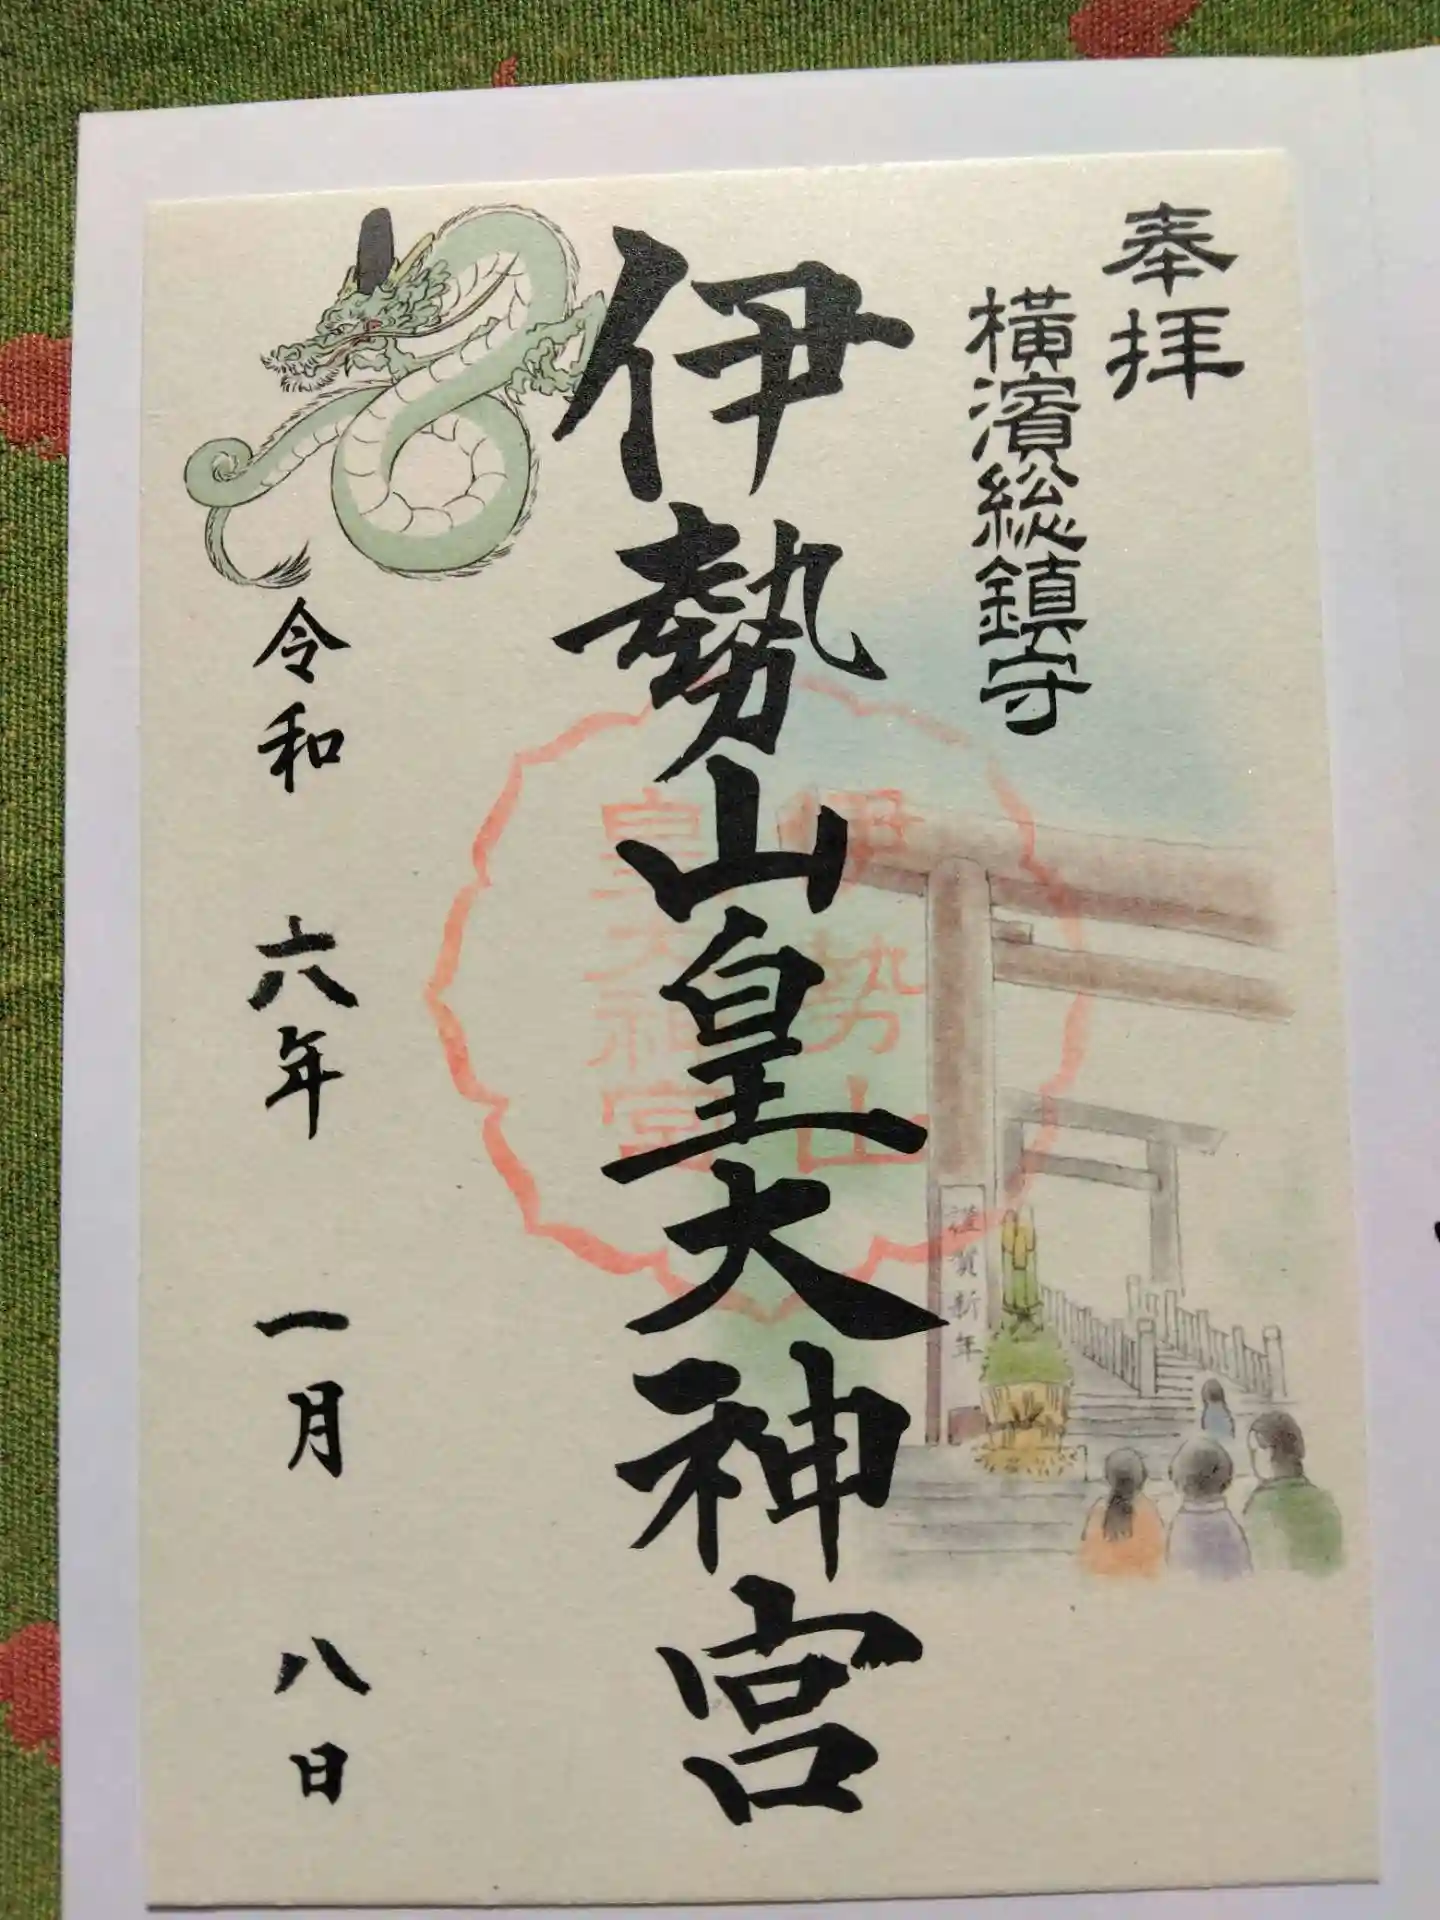 奉拝
横濱総鎮守
伊勢山皇大神宮
伊勢山
皇大神宮
謹賀新年
令和 六年 一月 八日